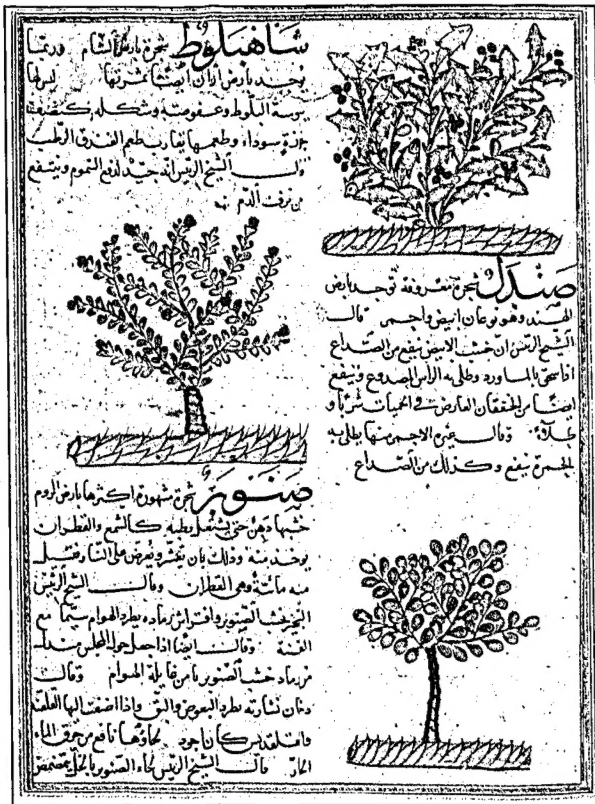 شاهبلوط شجرة بارض الشام وربما
يوجد بارض اران ايضا ثمرتها ليس لها
يبوسة البلوط وعفوصته وشكله كنصف
جوزة سوداء وطعمها يقارب طعم الفندق الرطب
قال الشيخ الرئيس انه جيد لدفع السموم وينفع
من نزف الدم
صندل شجرة معروفة توجد بارض
الهند وهو نوعان ابيض واحمر قال
الشيخ الرئيس ان خشب الابيض ينفع من الصداع
اذا سحق بالماورد وطلي به الراس المصدوع وينفع
ايضا من الخفقان العارض في الحميات شربا و
طلاء وقال غيره الاحمر منها يطلى به
الحمرة ينفع وكذلك من الصداع
صنوبر شجرة مشهورة اكثرها بارض الروم
خشبها دهن حتى يشتعل رطبه كالشمع والقطران
يوخذ منه وذلك بان يقشر ويعرض على النار فتسل
منه مائية وهي القطران وقال الشيخ الرئيس
التبخر بخشب الصنوبر وافتراش رماده يطرد الهوام سيما مع
القنة وقال ايضا اذا جعل حول المجلس
من رماد خشب الصنوبر يامن غايلة الهوام وقال
دخان نشارته يطرد البعوض والبق واذا اضفت اليها القلقند
كان اجود لحاؤها نافع من حرق الماء
الحار قال الشيخ الرئيس لحاء الصنوبر بالخل يتمضمض